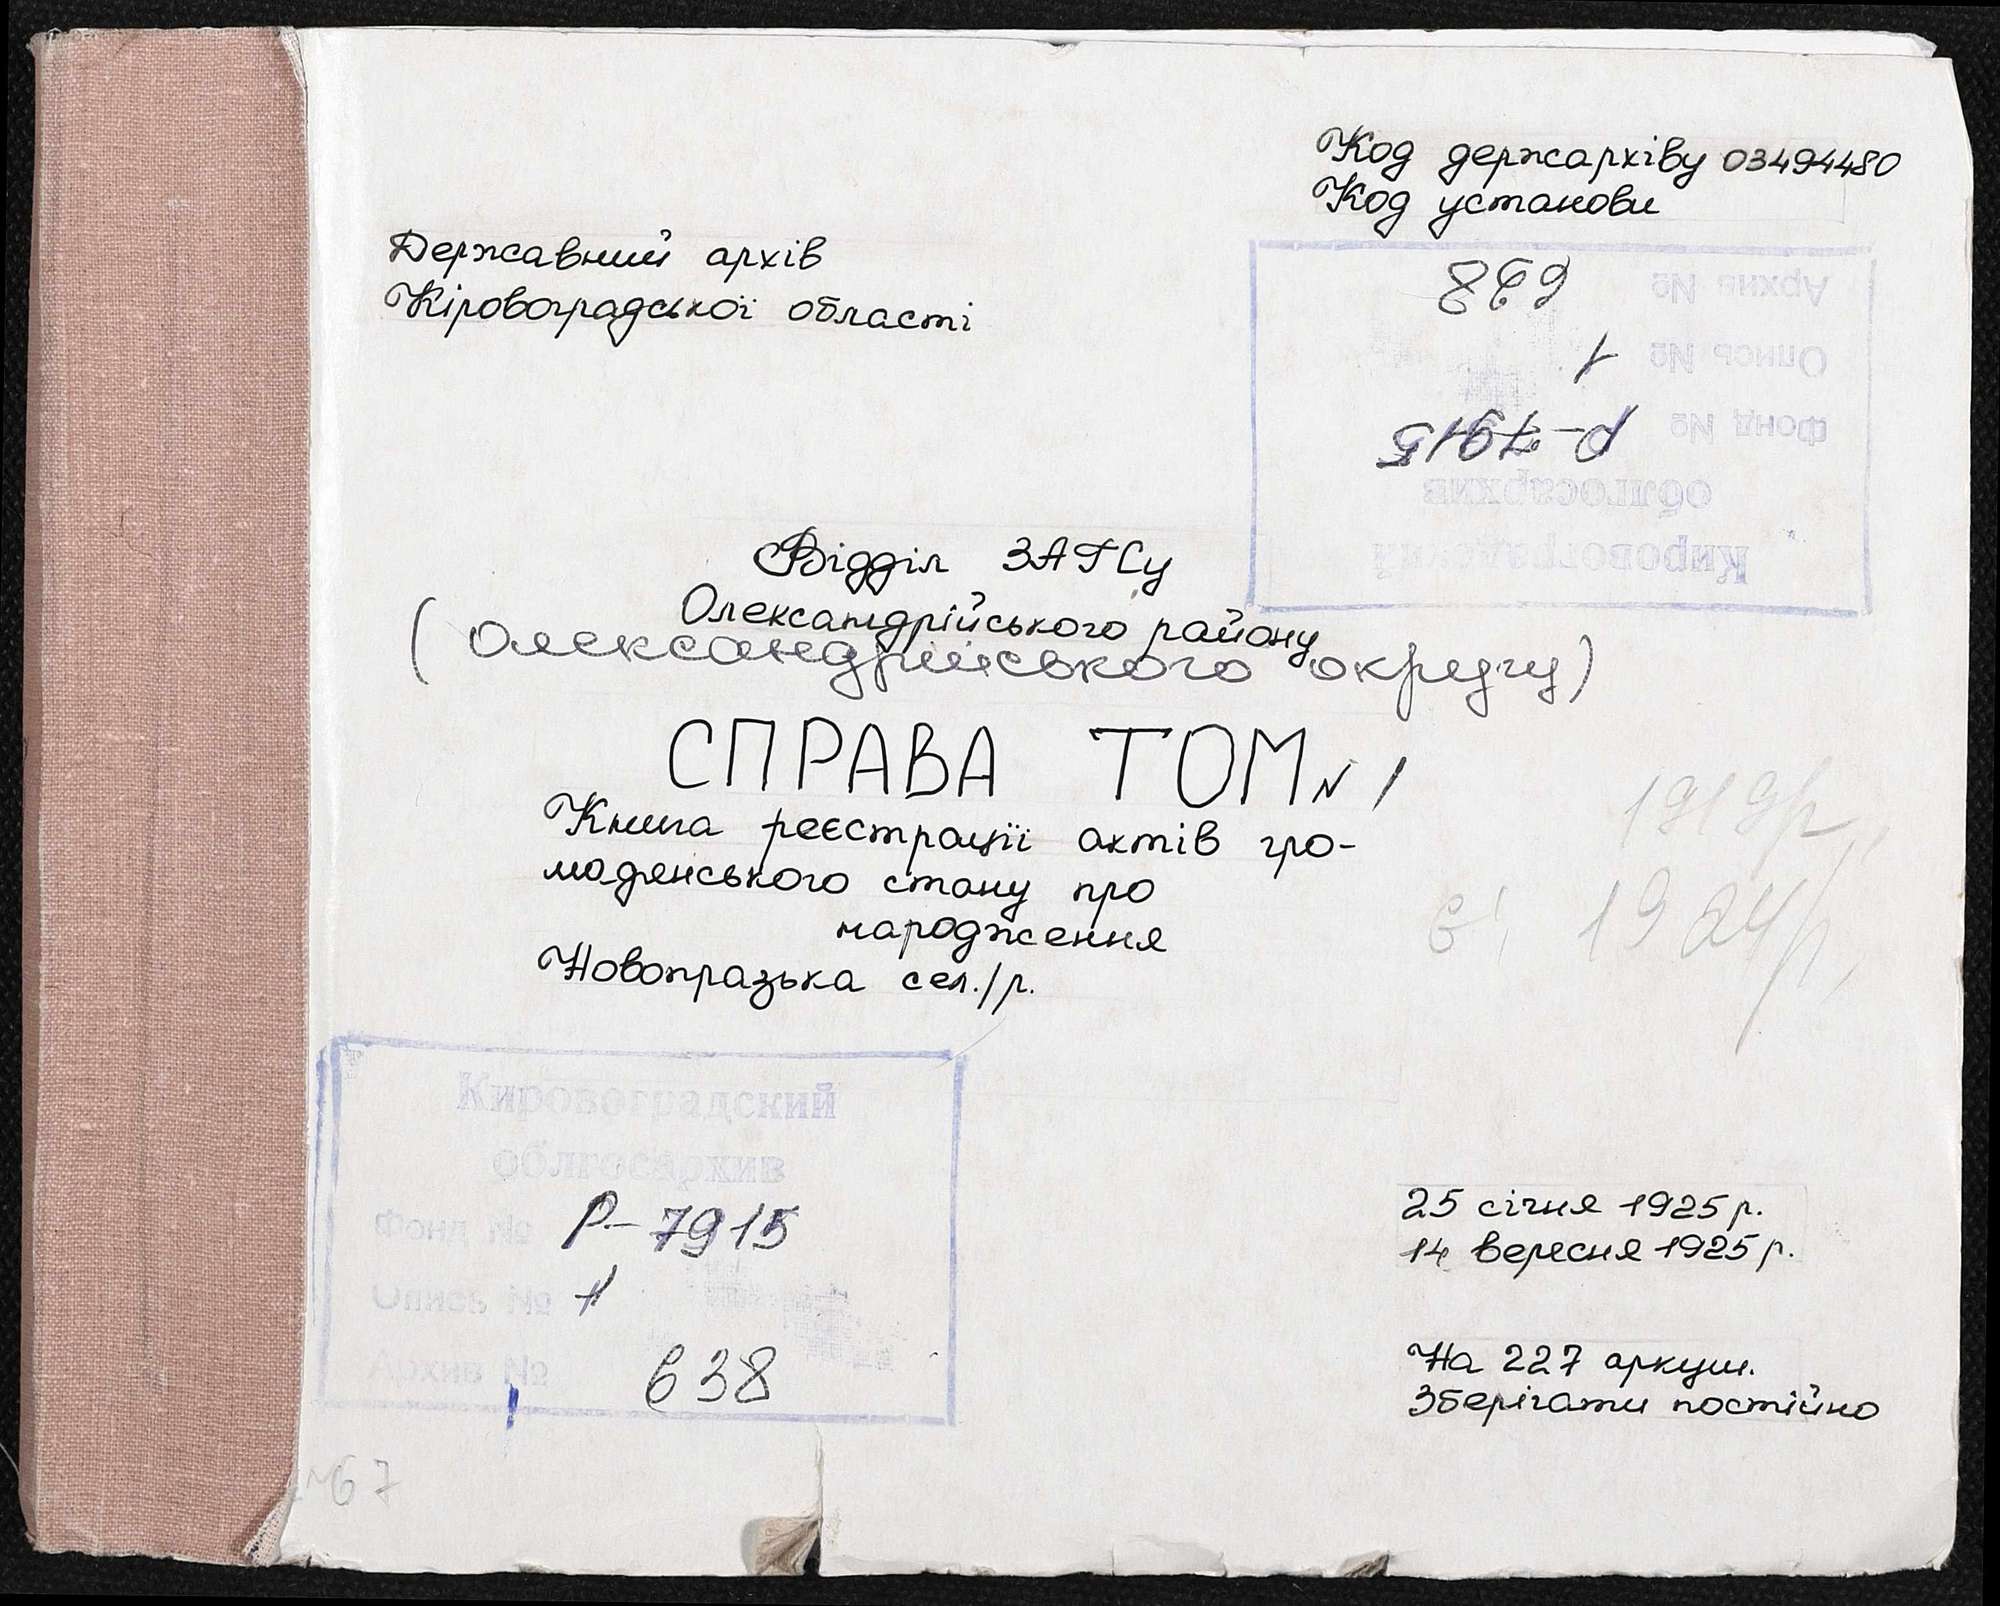 Код держархіву 03494480
Код установи
Державний архів
Кіровоградської області
Архив № 638
Опись № 1
Фонд № Р-7915
облгосархив
Кировоградский
Відділ ЗАГСу
Олександрійського району
(Олександрійського округу)
СПРАВА ТОМ N 1
Книга реєстрації актів гро-
мадянського стану про
народження
Новопразька сел./р.
1919р.,
є! 1924р.,
Кировоградский
облгосархив
Фонд № Р-7915
Опись № 1
Архив № 638
25 січня 1925 р.
14 вересня 1925 р.
На 227 аркуш.
Зберігати постійно
№67